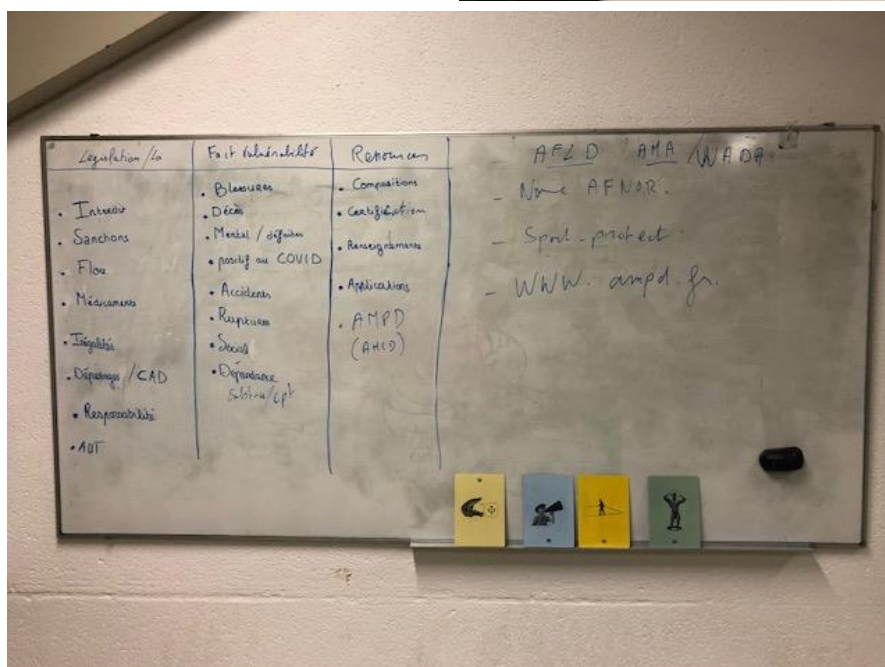 Législation/Lo
• Interdit
• Sanctions
• Flou
• Médicaments
• Inégalités
• Dépistages / CAD
• Responsabilité
• AUT
Fact Vulnérabilité
• Blessures
• Décès
• Mental / défaites
• positif au COVID
• Accidents
• Ruptures
• Social
• Dépendance
Ressources
• Compositions
• Certification
• Renseignements
• Applications
• AMPD
(AMLD)
AFLD AMA / WADA
- Norme AFNOR.
- Sport-protect.
- WWW. ampd. fr.